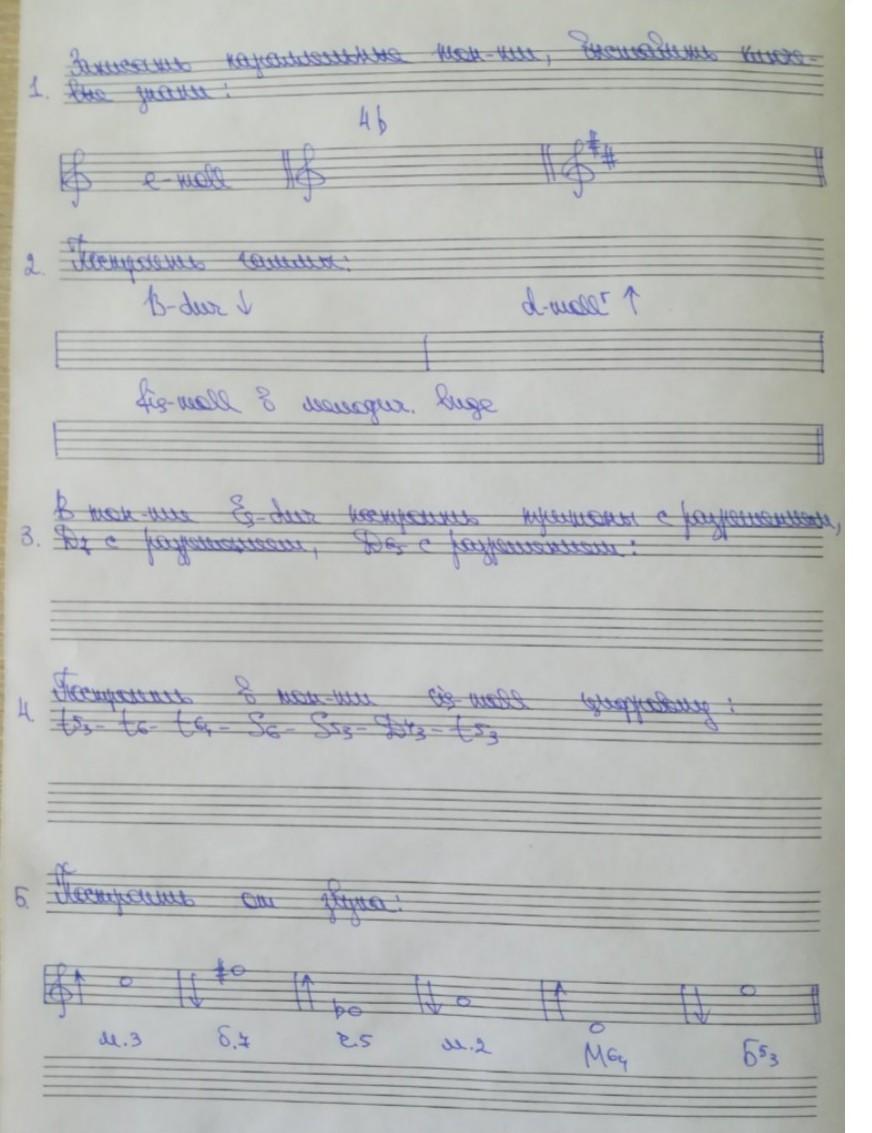 Записать параллельные тон-ти, выставить ключе-
1. вые знаки:
4b
e-moll
2. Построить гаммы:
B-dur ↓ d-moll г ↑
fis-moll в мелодич. виде
В тон-ти Es-dur построить тритоны с разрешением,
3. D7 с разрешением, D65 с разрешением:
Построить в тон-ти cis-moll цифровку:
4. t53 - t6 - t64 - S6 - S53 - D43 - t53
5. Построить от звука:
м.3 б.7 ч.5 м.2 М64 Б53